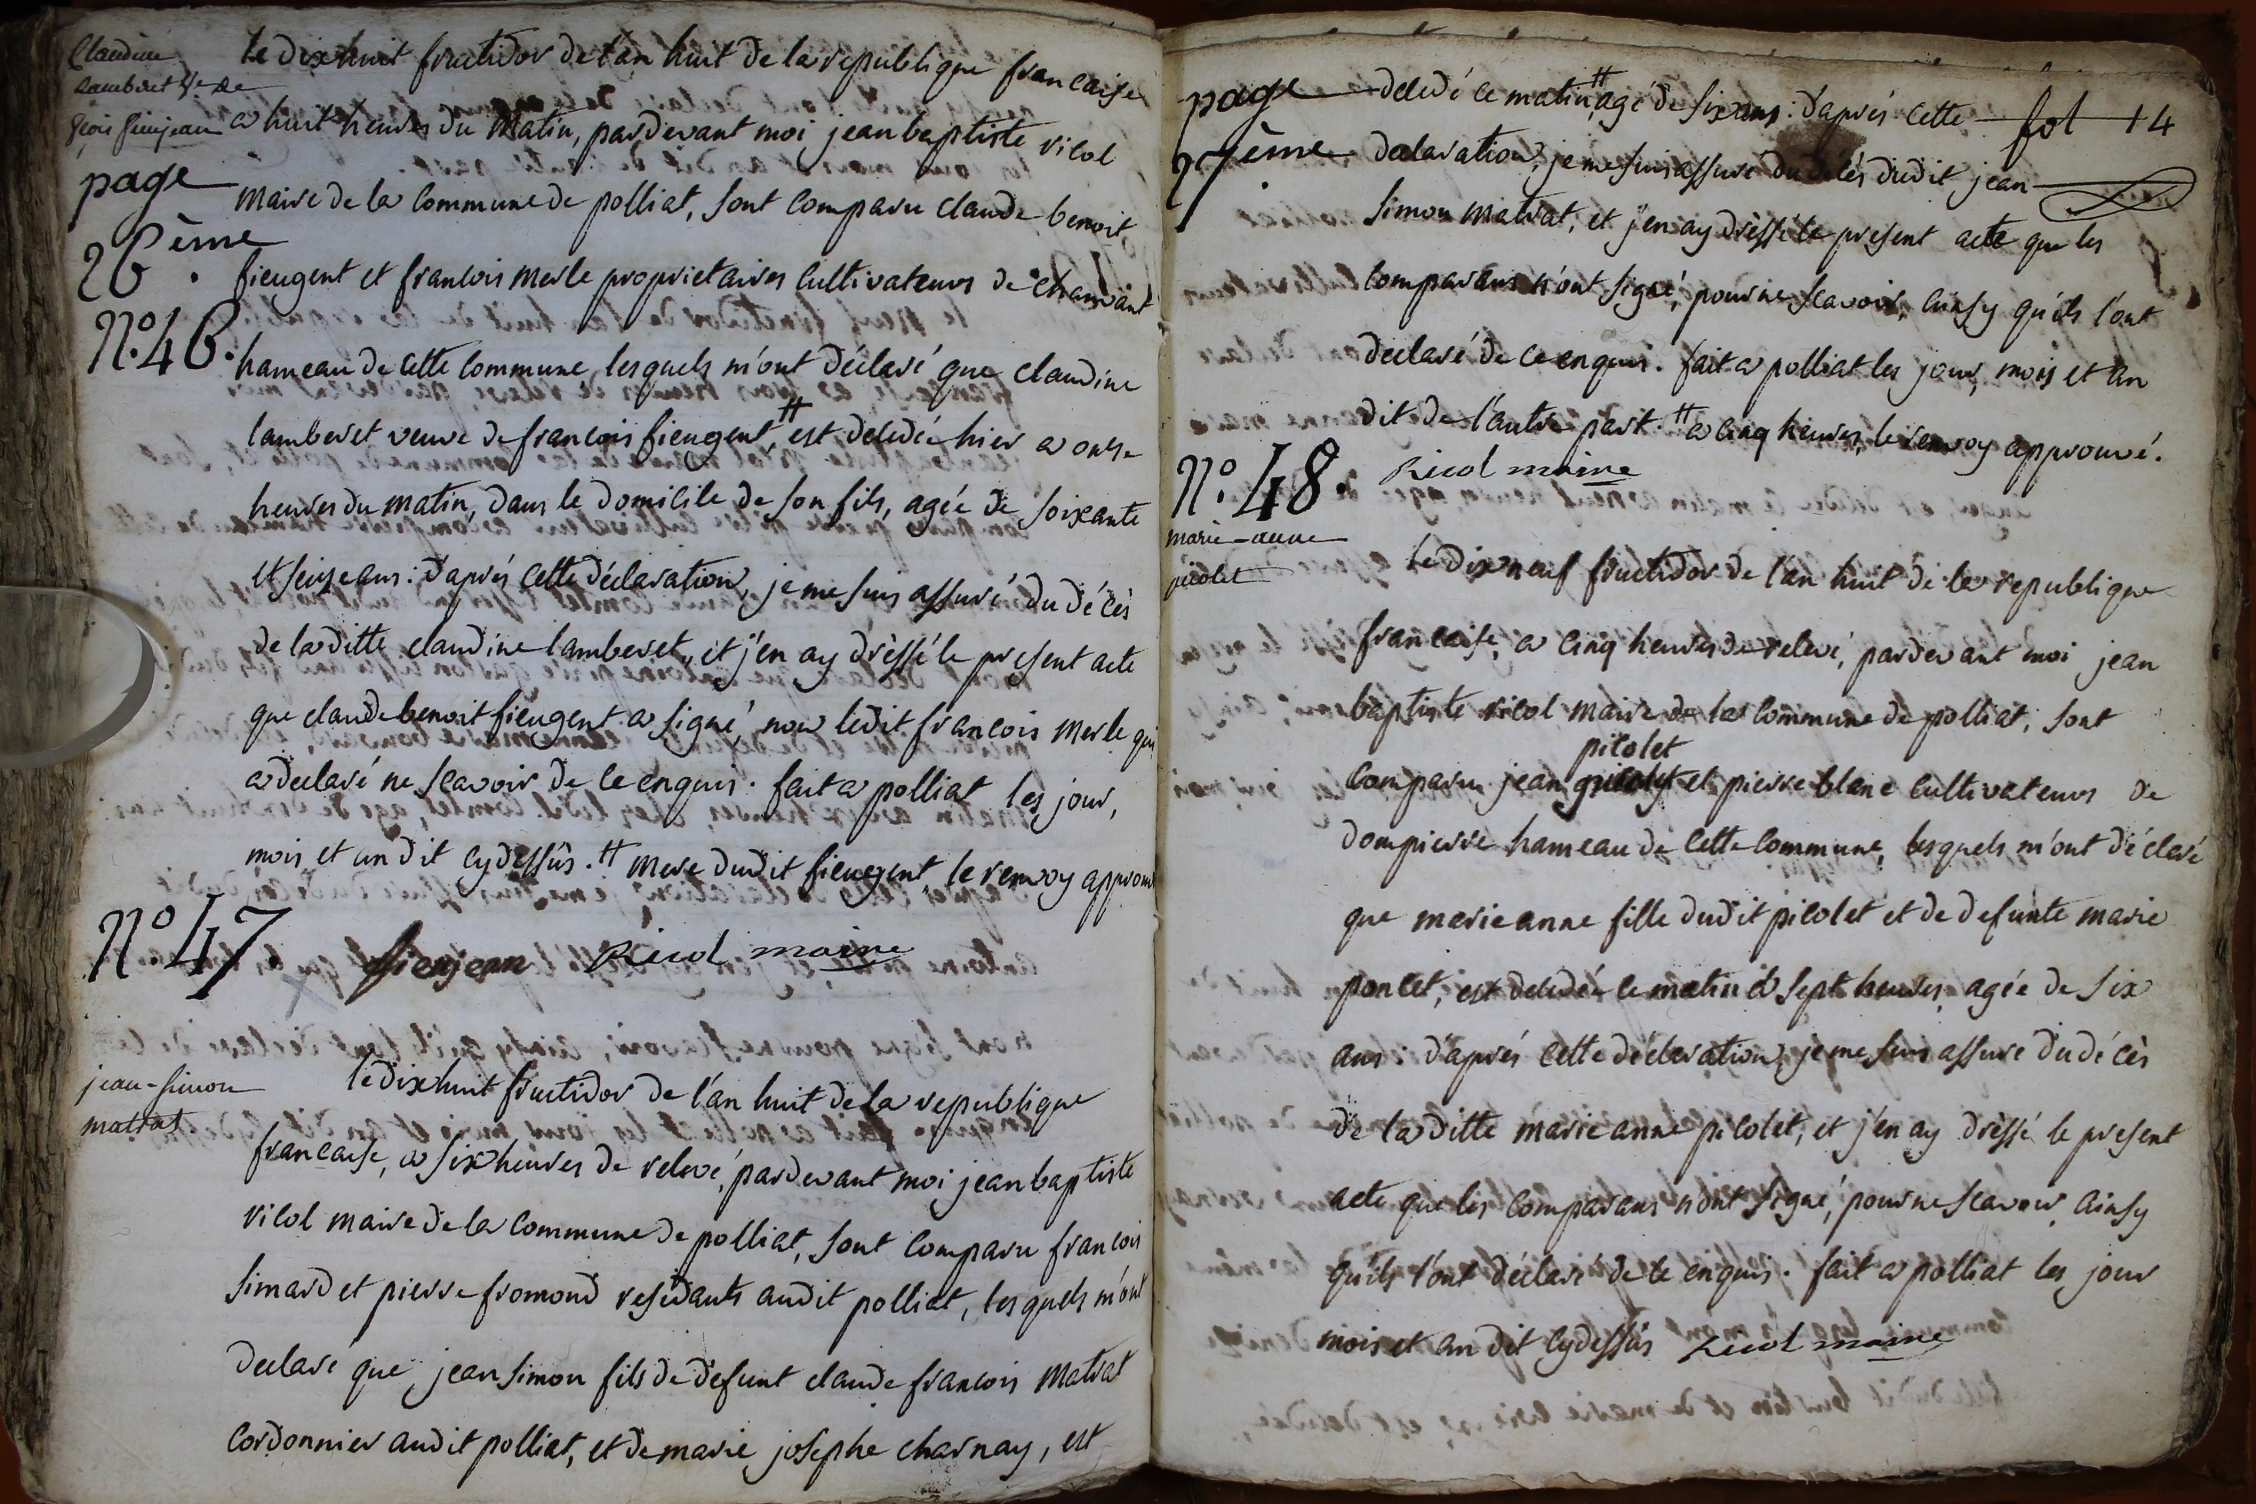 Claudine
Lamberet Ve de
fçois fieujean
page
26ème
N.o 46.
le dix huit fructidor de l'an huit de la republique francaise
a huit heures du matin, pardevant moi jean baptiste ricol
maire de la commune de polliat, sont comparu claude benoit
fieugent et francois merle proprietaires cultivateurs de chamant
hameau de cette commune, lesquels m'ont déclaré que claudine
lamberet veuve de francois fieugent, # est decedée hier a onze
heures du matin, dans le domicile de son fils, agée de soixante
et seize ans: d'aprés cette déclaration, je me suis assuré du décès
de la ditte claudine lamberet, et j'en ay dréssé le present acte
que claude benoit fieugent a signé, non ledit francois merle qui
a declaré ne scavoir de ce enquis. fait a polliat les jour,
mois et an dit cydessûs. # mere dudit fieugent, le renvoy approuv
N.o 47.
fieujean Ricol maire
jean-simon
matrat
le dix huit fructidor de l'an huit de la republique
francaise, a six heures de relevé, pardevant moi jean baptiste
ricol maire de la commune de polliat, sont comparu francois
simard et pierre fromond residants audit polliat, lesquels m'ont
declaré que jean simon fils de defunt claude francois matrat
cordonnier audit polliat, et de marie josephe charnay, est
page
27ème
fol 14
decedé ce matin, # agé de six ans: d'aprés cette
declaration, je me suis assuré du décés dudit jean
simon matrat, et j'en ay dréssé le present acte que les
comparans n'ont signé, pour ne scavoir, ainsy qu'ils l'ont
declaré de ce enquis. fait a polliat les jour, mois et an
dit de l'autre part. # a cinq heures, le renvoy approuvé.
N.o 48.
Ricol maire
marie-anne
picolet
le dix neuf fructidor de l'an huit de la republique
francaise, a cinq heures de relevé, pardevant moi jean
baptiste ricol maire de la commune de polliat, sont
picolet
comparu jean et pierre blanc cultivateurs de
dompierre hameau de cette commune, lesquels m'ont déclaré
que marie anne fille dudit picolet et de defunte marie
poncet, est decedée ce matin a sept heures, agée de six
ans: d'aprés cette déclaration, je me suis assuré du décès
de la ditte marie anne picolet, et j'en ay dréssé le present
acte que les comparans n'ont signé, pour ne scavoir, ainsy
qu'ils l'ont déclaré de ce enquis. fait a polliat les jour
mois et an dit cydessûs Ricol maire